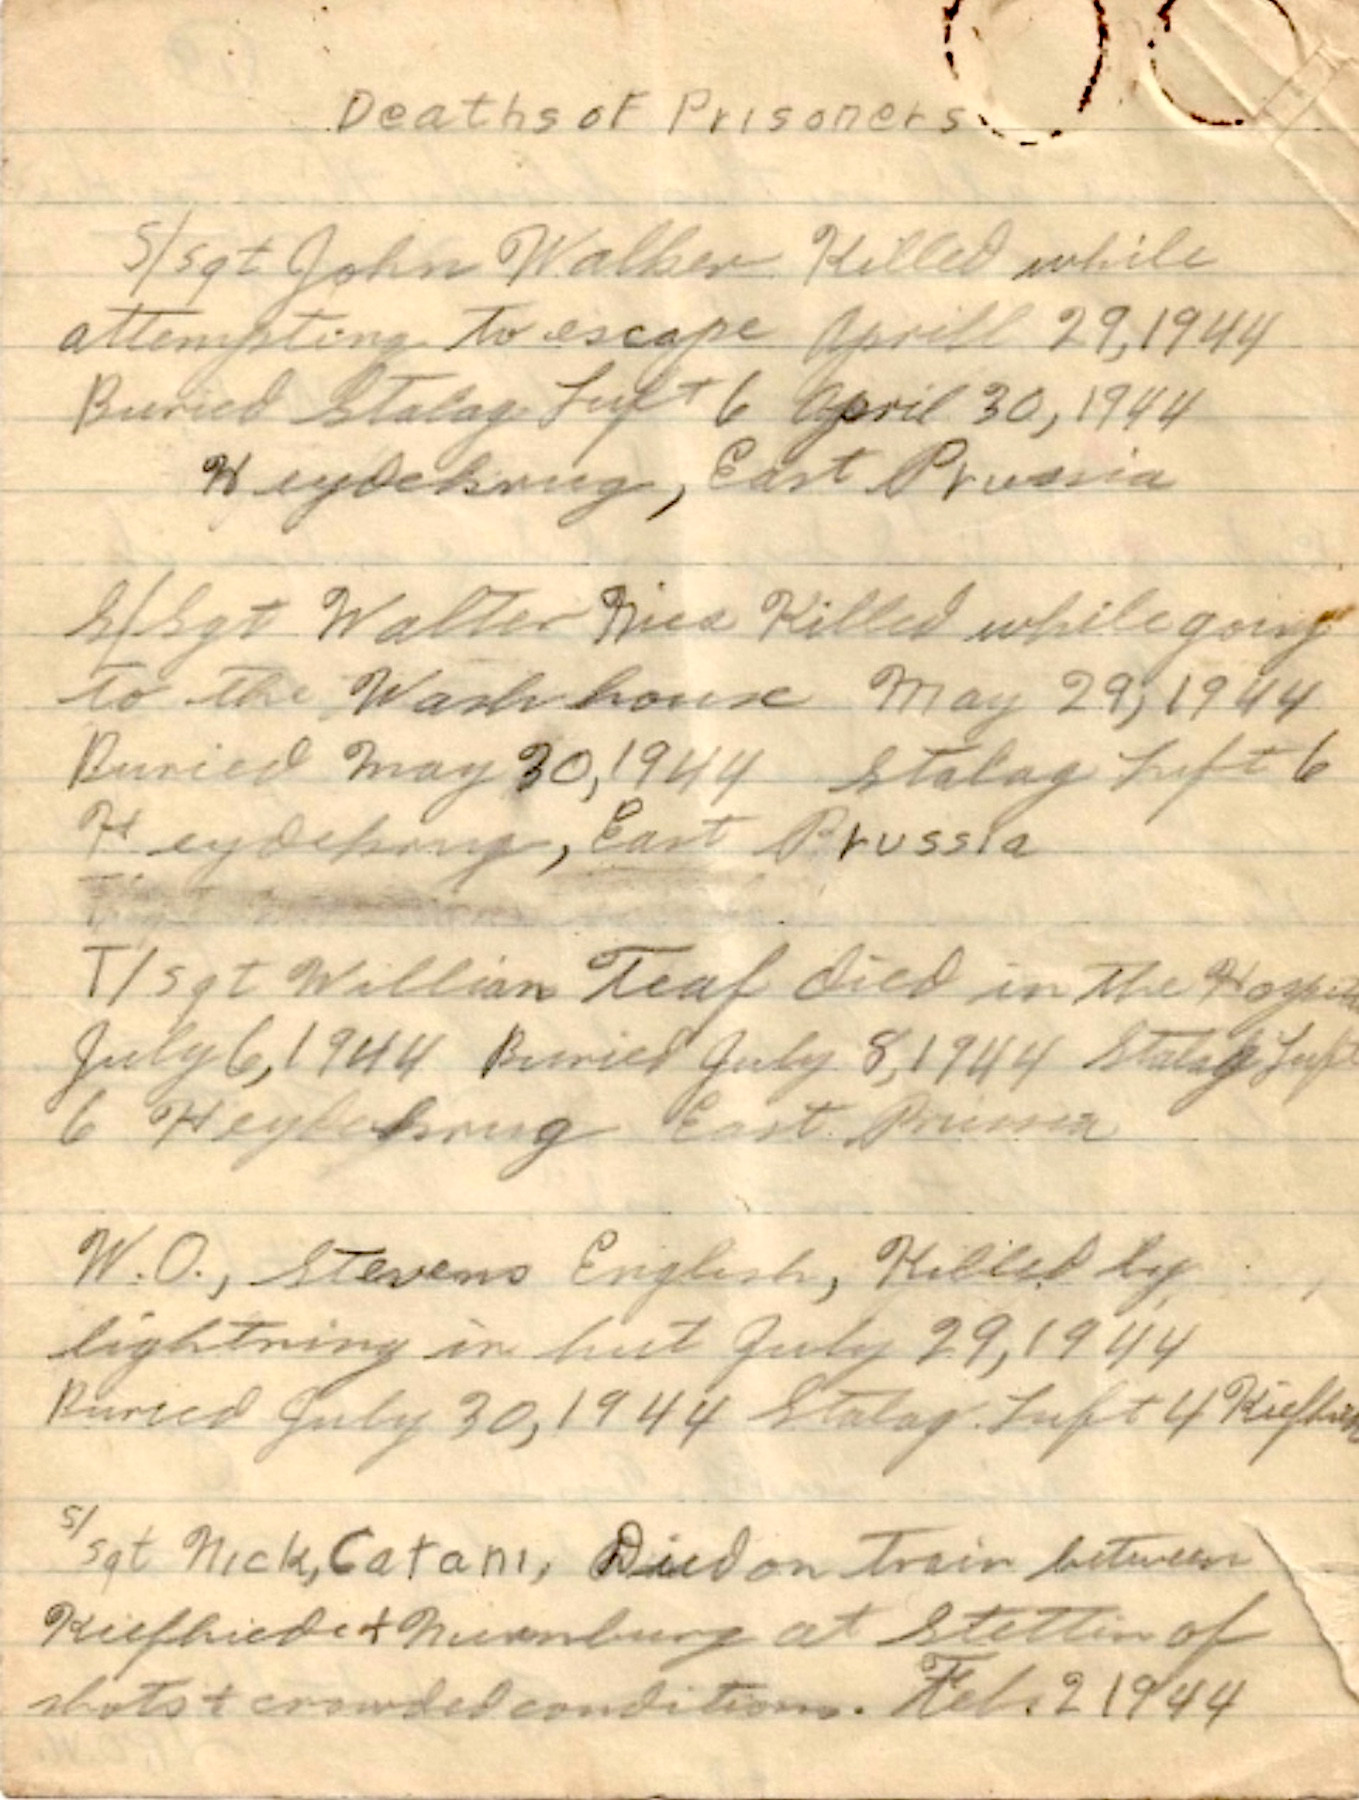 Deaths of Prisoners
S/sgt John Walker Killed while
attempting to escape Aprill 29, 1944
Buried Stalag Luft 6 April 30, 1944
Heydekrug, East Prussia
S/Sgt Walter Nies Killed while going
to the Wash house May 29, 1944
Buried May 30, 1944 Stalag Luft 6
Heydekrug, East Prussia
T/sgt William Teaf died in the
July 6, 1944 Buried July 8, 1944 Stalag Luft
6 Heydekrug East Prussia
W.O., Stevens English, Killed by
lightning in hut July 29, 1944
Buried July 30, 1944 Stalag Luft 4
S/sgt Nick, Catani, Died on train between
Kiefhiede + Nurnburg at Stettin of
shots + crowded conditions. Feb. 2 1944